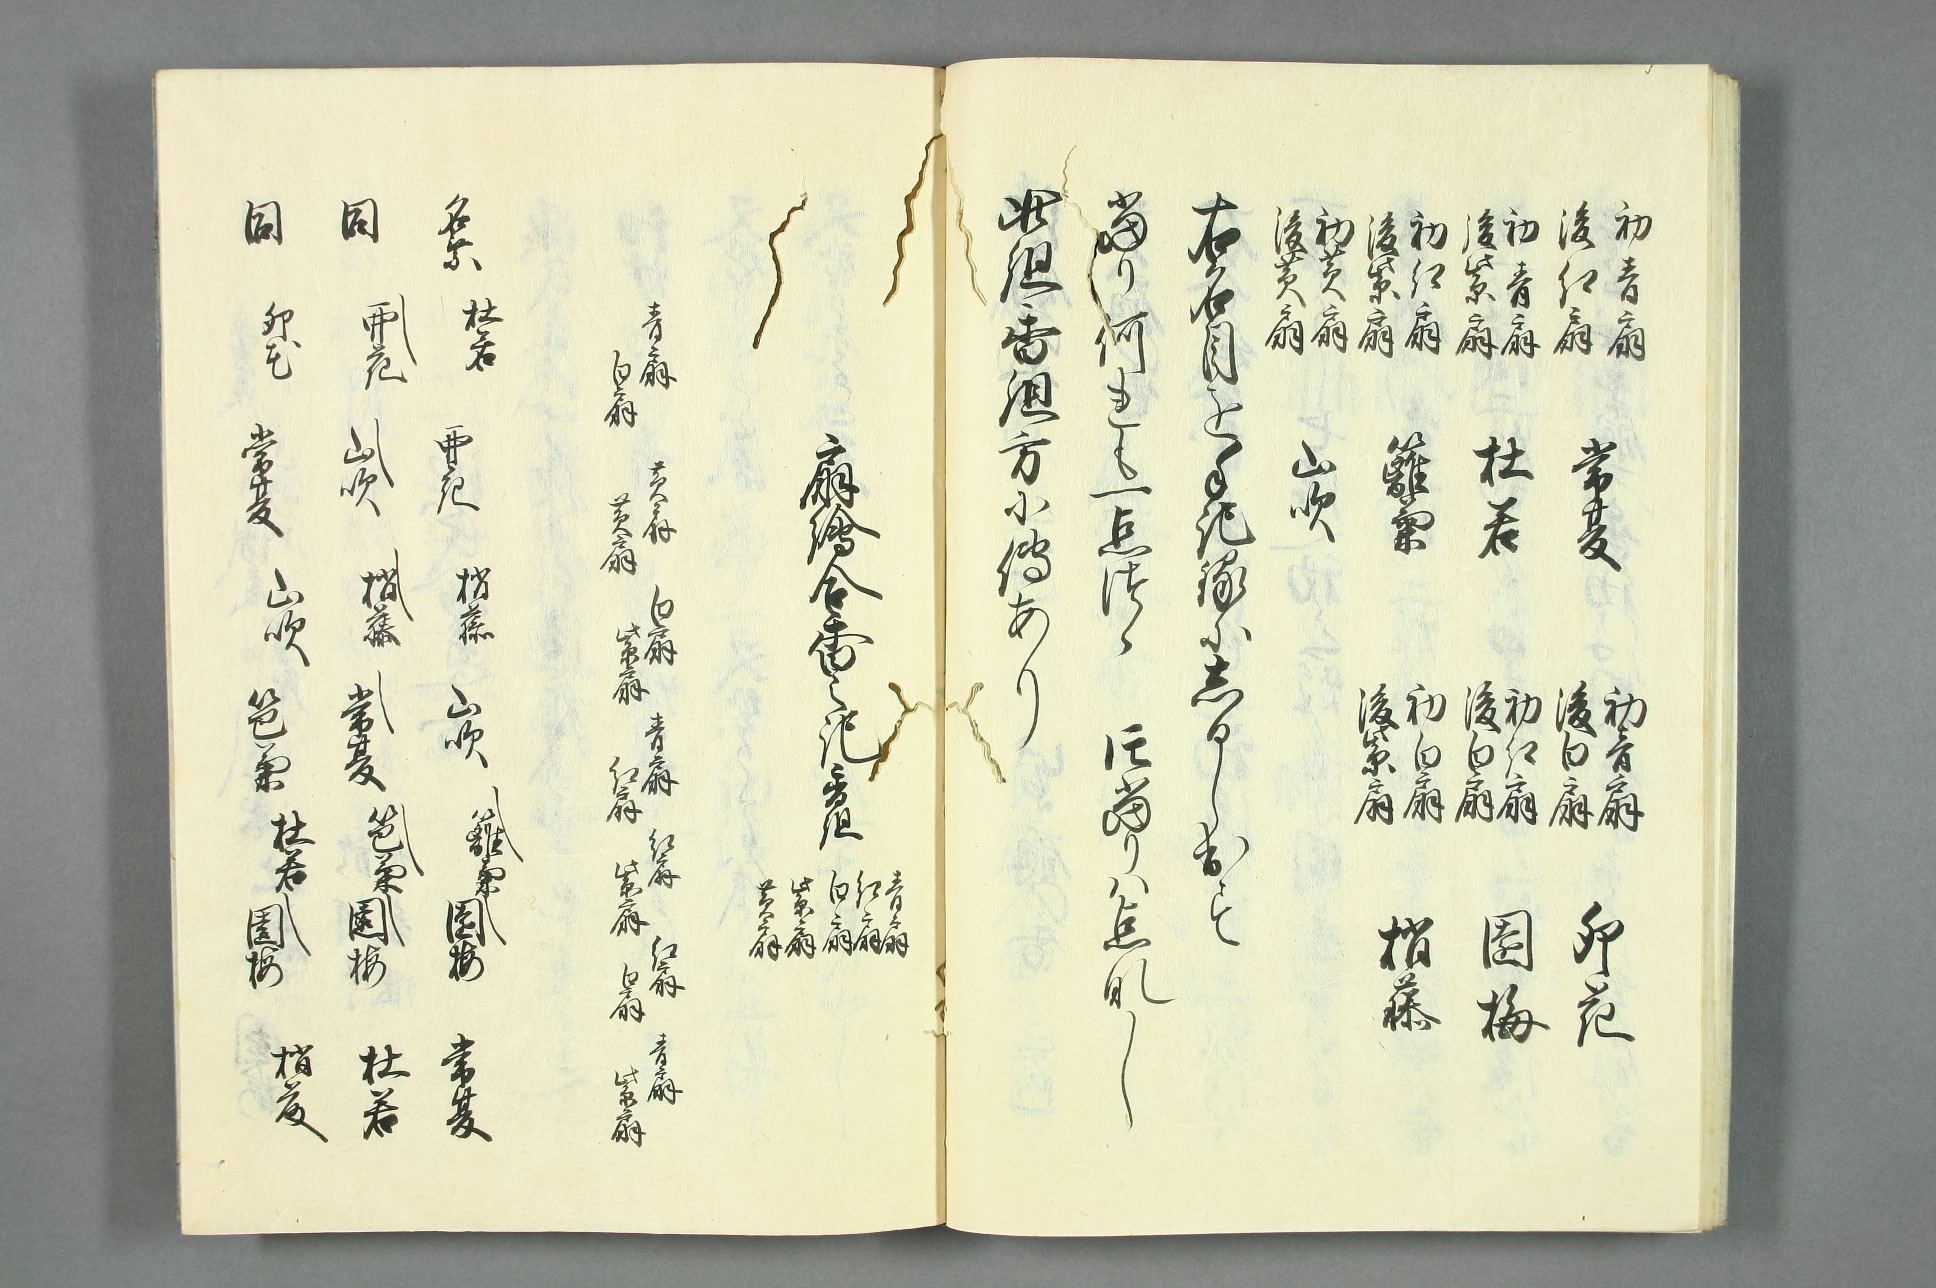 初青扇
後紅扇
常夏
初青扇
後白扇
卯花
初青扇
後紫扇
杜若
初紅扇
後白扇
園梅
初紅扇
後紫扇
籬菊
初白扇
後紫扇
梢藤
初黄扇
後黄扇
山吹
右名目を手記録に志るし出す
当り何れも一点つゝ 片当りハ点なし
此組香組方に傳あり
扇繪合香之記 香組
青扇
紅扇
白扇
紫扇
黄扇
青扇 黄扇 白扇 青扇 紅扇 紅扇 青扇
白扇 黄扇 紫扇 紅扇 紫扇 白扇 紫扇
名乗 杜若 卯花 梢藤 山吹 籬菊 園梅 常夏
同 卯花 山吹 梢藤 常夏 笆菊 園梅 杜若
同 卯花 常夏 山吹 笆菊 杜若 園梅 梢藤